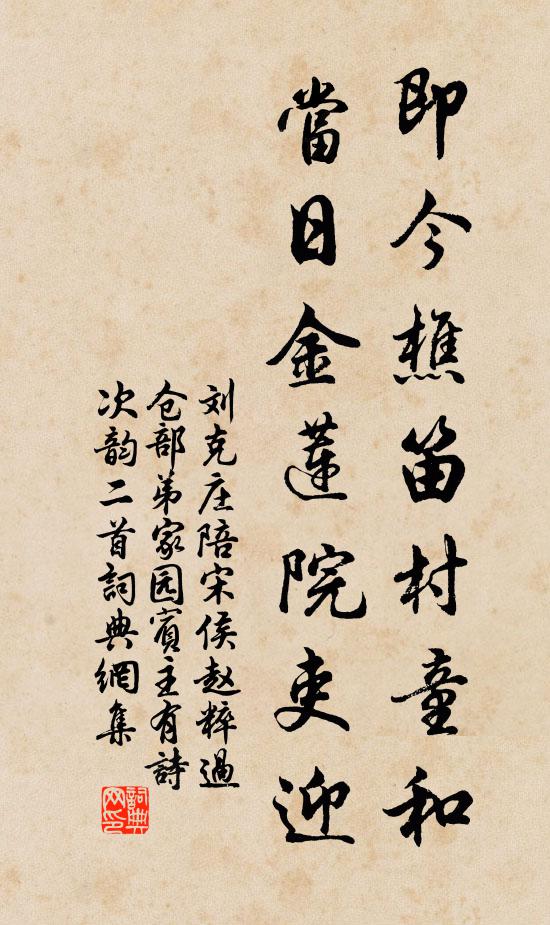 即今樵笛村童和
當日金蓮院吏迎
刘克庄陪宋侯赵粹過
仓部弟家园賓主有詩
次韵二首詞典網集
詞典
网印